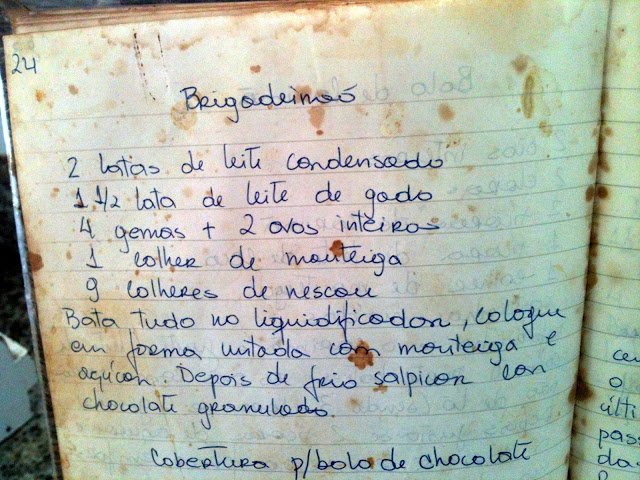 24
Brigadeimaó
2 latas de leite condensado
1 1/2 lata de leite de gado
4 gemas + 2 ovos inteiros
1 colher de manteiga
9 colheres de nescau
Bata tudo no liquidificador, coloque
em forma untada com manteiga e
açúcar. Depois de frio salpicar com
chocolate granulado.
Cobertura p/bolo de chocolate
ce
o
últi
pass
da